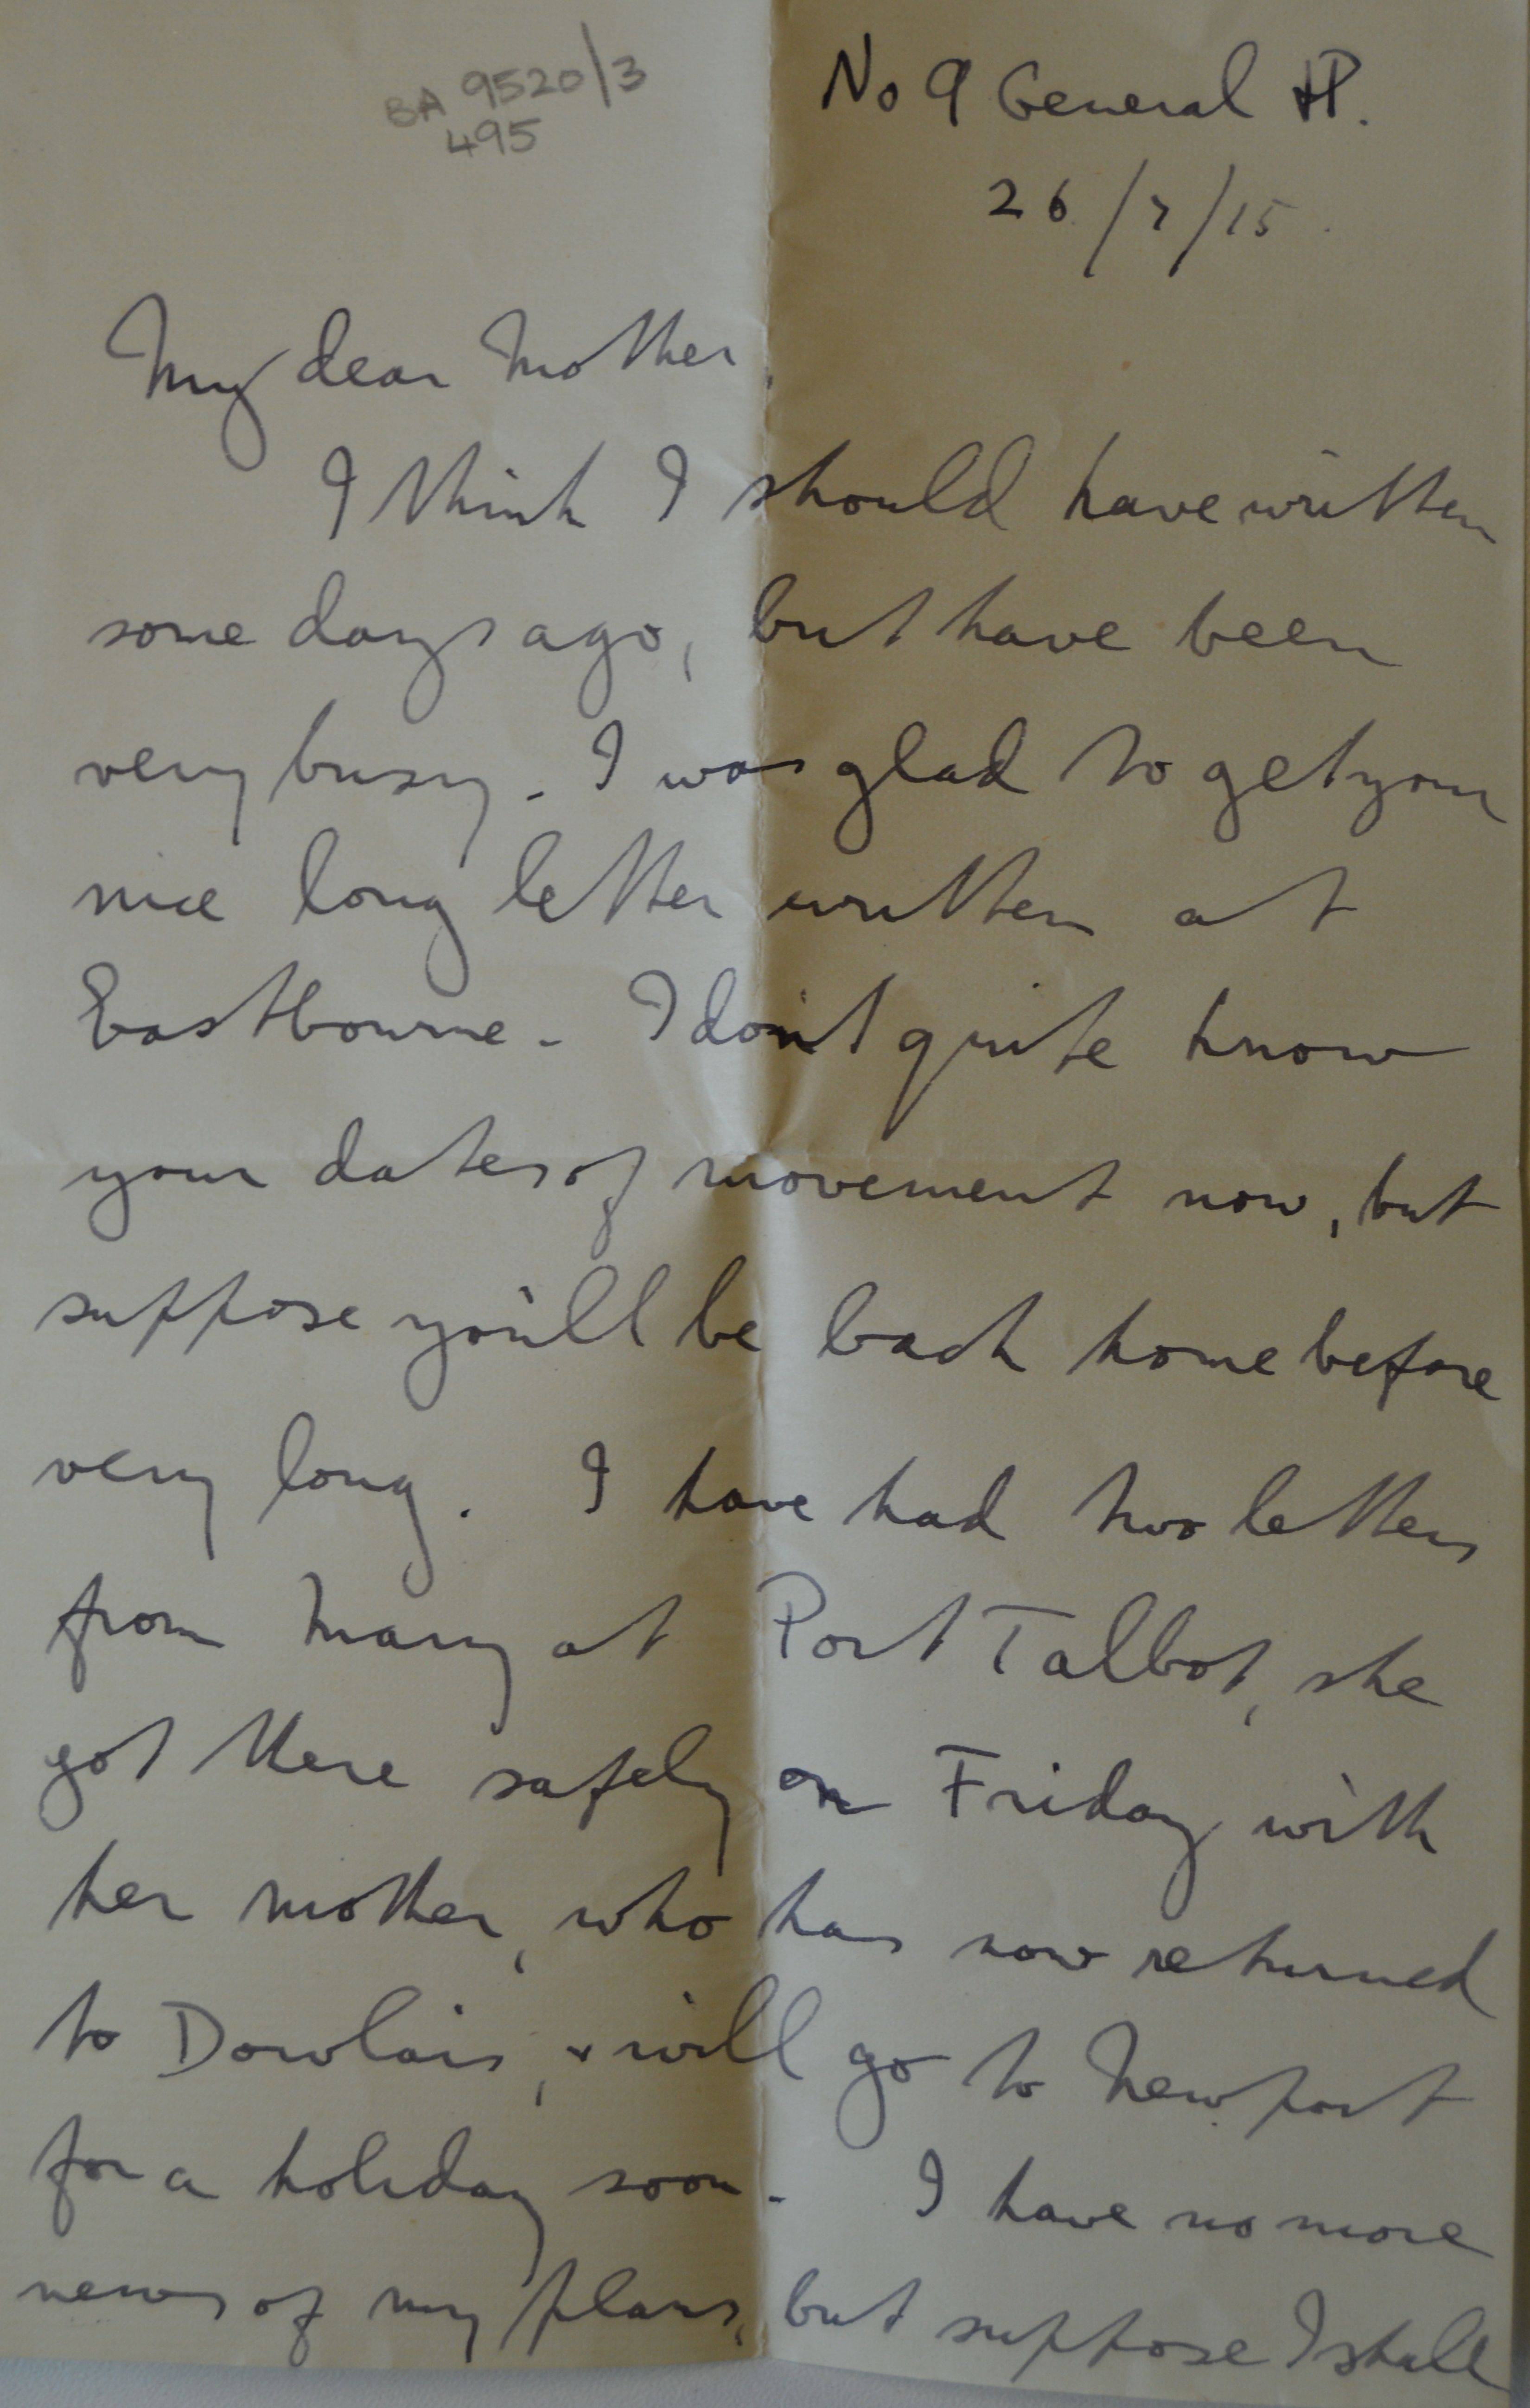 BA 9520/3
495
No 9 General HP.
26/7/15.
My dear Mother,
I think I should have written
some days ago, but have been
very busy. I was glad to get your
nice long letter written at
Eastbourne. I don't quite know
your dates of movement now, but
suppose you'll be back home before
very long. I have had two letters
from Mary at Port Talbot, she
got there safely on Friday with
her mother, who has now returned
to Dowlais, & will go to Newport
for a holiday soon. I have no more
news of my plans, but suppose I shall